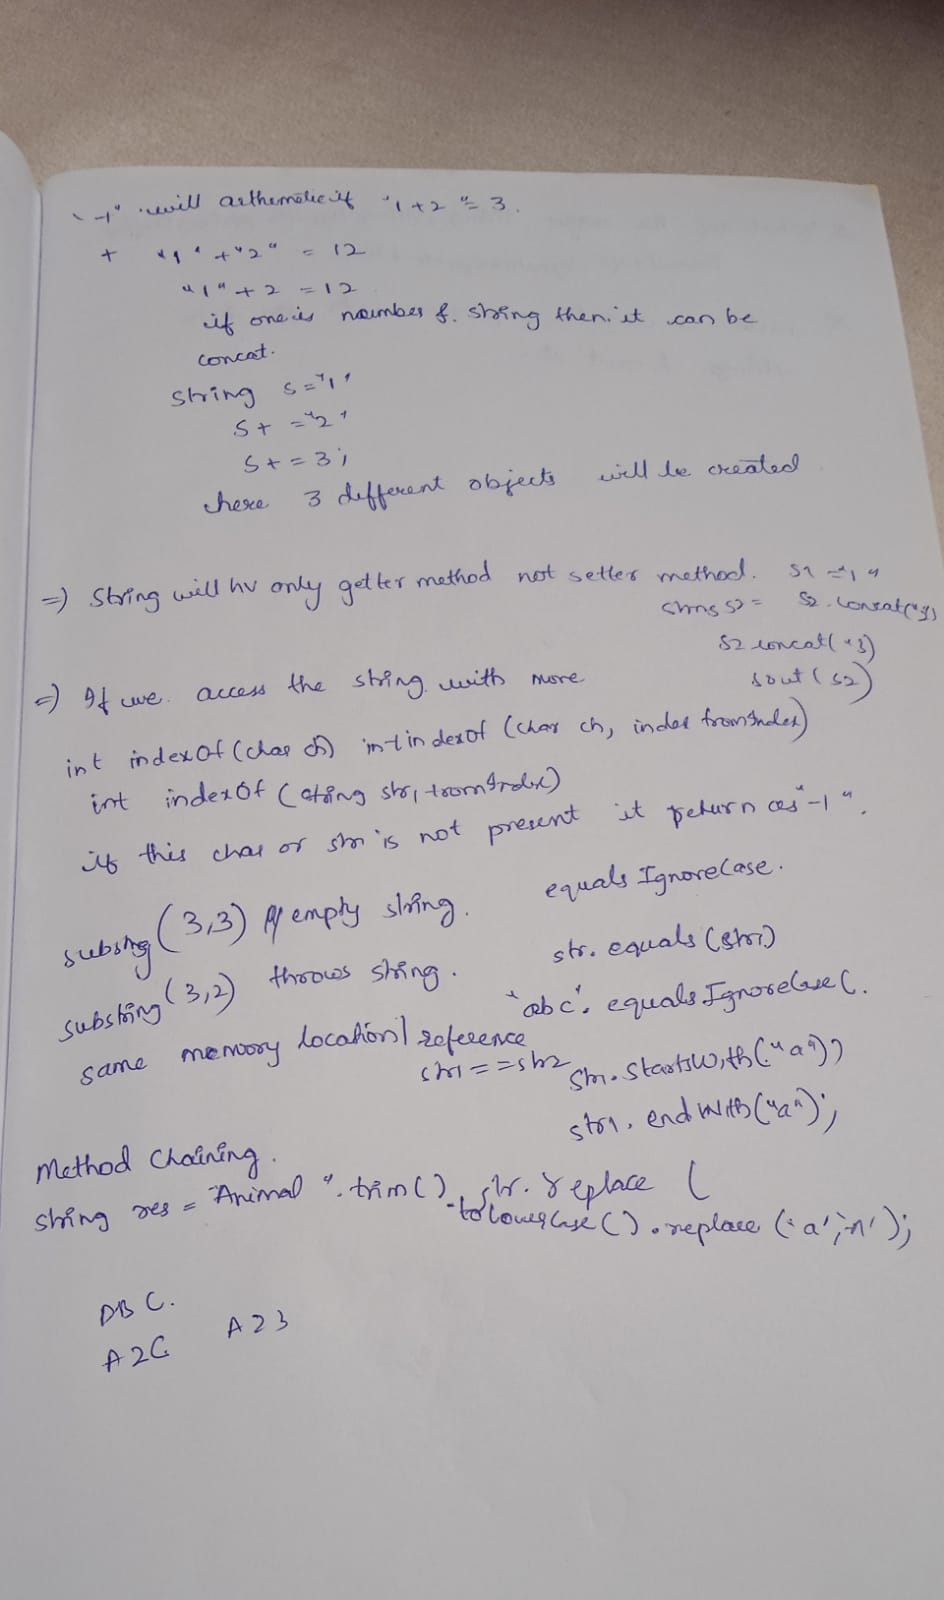 "+" will arthematic if "1+2"= 3.
+ "1" + "2" = 12
"1" + 2 = 12
if one is noumber &. string then it can be
concat.
String s="1"
S+ ="2"
S+=3;
here 3 different objects will be created
=) String will hv only getter method not setter method. S1 ="1"
s2 = s2.concat("3)
s2 concat("3)
=) If we access the string with more
sout(s2)
int indexOf (char ch) int indexOf (char ch, index fromIndex)
int indexOf (string str, fromIndex)
if this char or str is not present it return as "-1".
substrg (3,3) empty string. equals IgnoreCase.
substring (3,2) throws string. str. equals (str1)
"abc". equals IgnoreCase (.
same memory location/reference
str1 == str2 Str. StartsWith("a"))
str1. endWith("a");
Method Chaining.
string res = "Animal ". trim() str. replace (
.toLowerCase().replace ('a','n');
DBC.
A2C A23